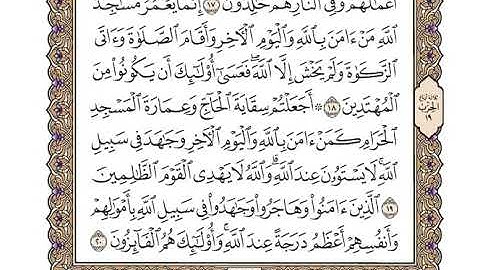 أَعْمَٰلُهُمْ وَفِى ٱلنَّارِ هُمْ خَٰلِدُونَ ١٧ إِنَّمَا يَعْمُرُ مَسَٰجِدَ
ٱللَّهِ مَنْ ءَامَنَ بِٱللَّهِ وَٱلْيَوْمِ ٱلْـَٔاخِرِ وَأَقَامَ ٱلصَّلَوٰةَ وَءَاتَى
ٱلزَّكَوٰةَ وَلَمْ يَخْشَ إِلَّا ٱللَّهَ ۖ فَعَسَىٰٓ أُو۟لَٰٓئِكَ أَن يَكُونُوا۟ مِنَ
ٱلْمُهْتَدِينَ ١٨ ۞ أَجَعَلْتُمْ سِقَايَةَ ٱلْحَآجِّ وَعِمَارَةَ ٱلْمَسْجِدِ
ٱلْحَرَامِ كَمَنْ ءَامَنَ بِٱللَّهِ وَٱلْيَوْمِ ٱلْـَٔاخِرِ وَجَٰهَدَ فِى سَبِيلِ
ٱللَّهِ ۚ لَا يَسْتَوُۥنَ عِندَ ٱللَّهِ ۗ وَٱللَّهُ لَا يَهْدِى ٱلْقَوْمَ ٱلظَّٰلِمِينَ
١٩ ٱلَّذِينَ ءَامَنُوا۟ وَهَاجَرُوا۟ وَجَٰهَدُوا۟ فِى سَبِيلِ ٱللَّهِ بِأَمْوَٰلِهِمْ
وَأَنفُسِهِمْ أَعْظَمُ دَرَجَةً عِندَ ٱللَّهِ ۚ وَأُو۟لَٰٓئِكَ هُمُ ٱلْفَآئِزُونَ ٢٠
الحزب
١٩